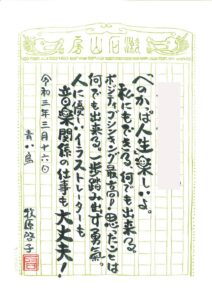 漱石山房
へのかっぱ人生楽しいよ。
私にもできる、何でも出来る。
ポジティブシンキング最高!思ったことは
何でも出来る。一歩踏み出す勇氣。
人に優しいイラストレーターも
音楽関係の仕事も大丈夫!
令和三年三月十六日
青い鳥
牧原啓子